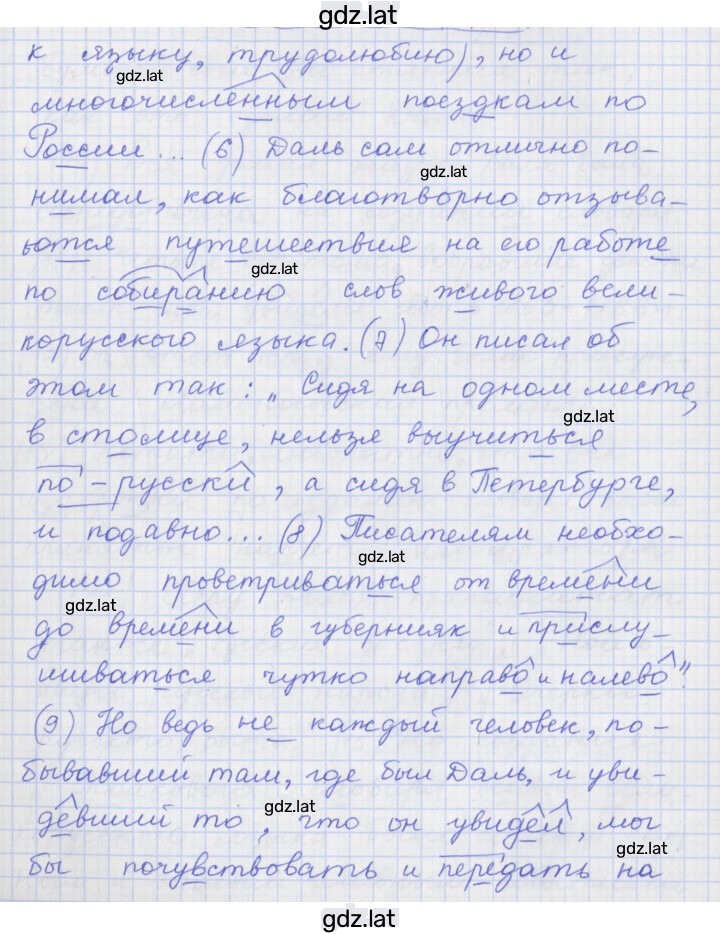 gdz.lat
к языку, трудолюбию), но и
gdz.lat
многочисленным поездкам по
России... (6) Даль сам отлично по-
gdz.lat
нимал, как благотворно отзыва-
ются путешествия на его работе
gdz.lat
по собиранию слов живого вели-
корусского языка. (7) Он писал об
этом так: „Сидя на одном месте,
gdz.lat
в столице, нельзя выучиться
по-русски, а сидя в Петербурге,
и подавно... (8) Писателям необхо-
gdz.lat
димо проветриваться от времени
gdz.lat
до времени в губерниях и прислу-
шиваться чутко направо и налево".
(9) Но ведь не каждый человек, по-
бывавший там, где был Даль, и уви-
gdz.lat
девший то, что он увидел, мог
gdz.lat
бы почувствовать и передать на
gdz.lat